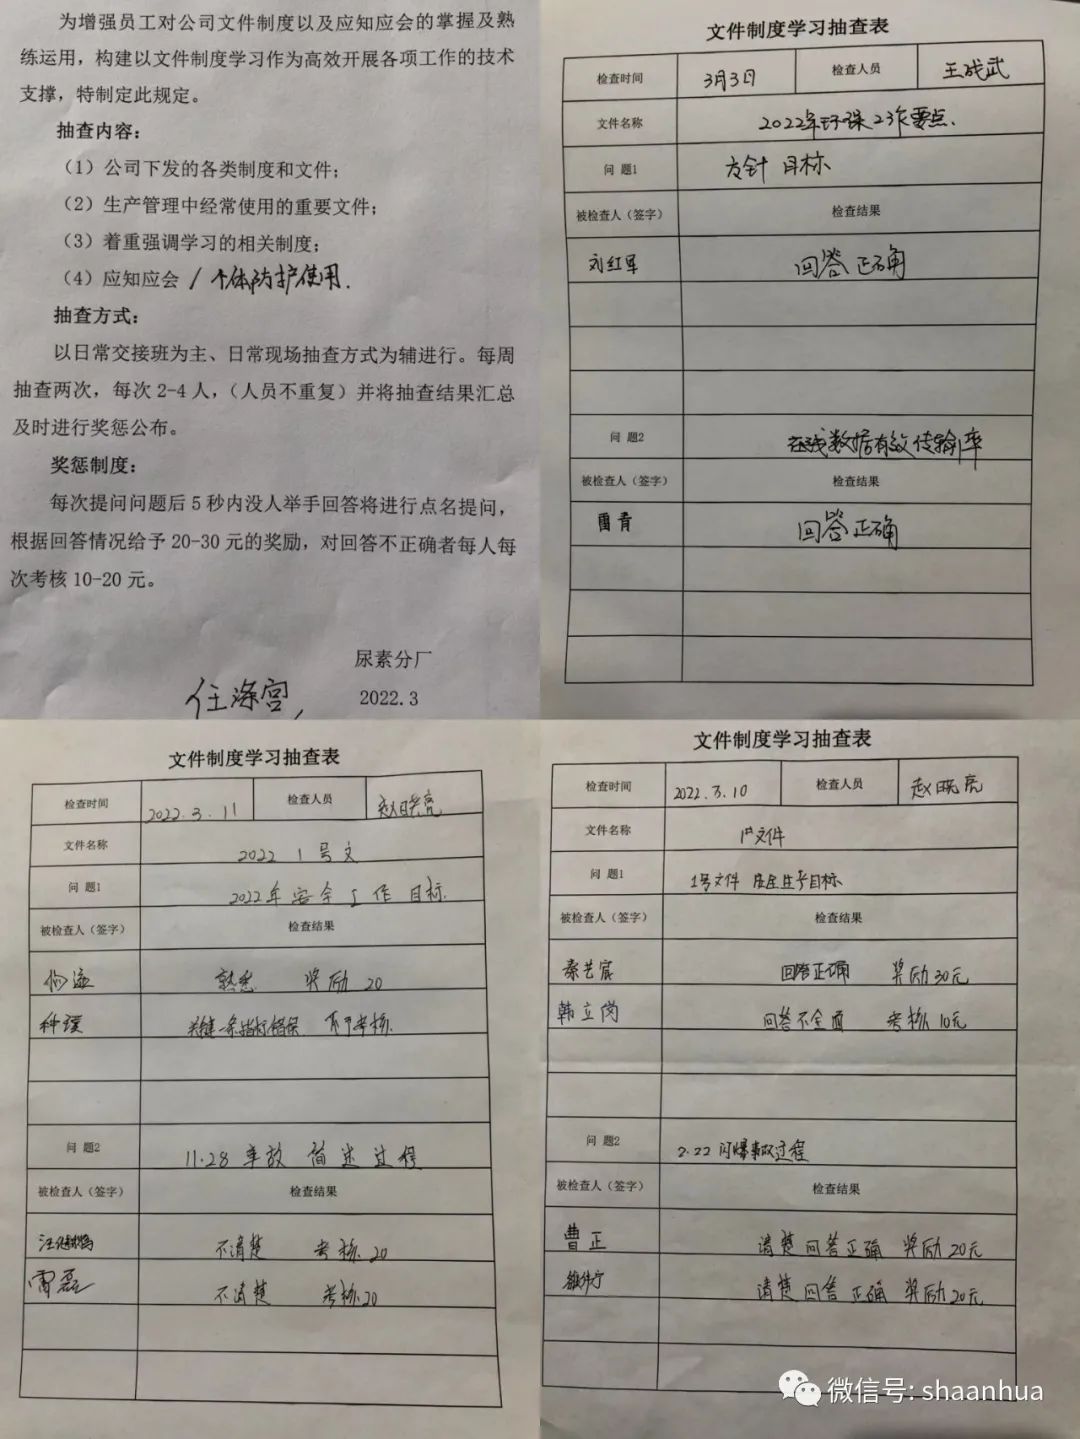 为增强员工对公司文件制度以及应知应会的掌握及熟
练运用，构建以文件制度学习作为高效开展各项工作的技术
支撑，特制定此规定。
抽查内容：
（1）公司下发的各类制度和文件；
（2）生产管理中经常使用的重要文件；
（3）着重强调学习的相关制度；
（4）应知应会 / 个体防护使用.
抽查方式：
以日常交接班为主、日常现场抽查方式为辅进行。每周
抽查两次，每次 2-4 人，（人员不重复）并将抽查结果汇总
及时进行奖惩公布。
奖惩制度：
每次提问问题后 5 秒内没人举手回答将进行点名提问，
根据回答情况给予 20-30 元的奖励，对回答不正确者每人每
次考核 10-20 元。
尿素分厂
2022.3
文件制度学习抽查表
检查时间 3月3日 检查人员 王战武
文件名称 2022年环保工作要点.
问 题1 方针 目标
被检查人（签字） 检查结果
刘红军 回答正确
问 题2 在线数据有效传输率
被检查人（签字） 检查结果
雷青 回答正确
文件制度学习抽查表
检查时间 2022.3.11 检查人员 赵晓亮
文件名称 2022 1号文
问 题1 2022年安全工作目标.
被检查人（签字） 检查结果
熟悉 奖励 20
考核.
问 题2 11.28 事故 简述过程
被检查人（签字） 检查结果
不清楚 考核.20
雷磊 不清楚 考核.20
文件制度学习抽查表
检查时间 2022.3.10 检查人员 赵晓亮
文件名称 1#文件
问 题1 1号文件 安全生产目标
被检查人（签字） 检查结果
秦艺宸 回答正确 奖励30元
韩立岗 回答不全面 考核10元
问 题2 2.22 闪爆事故过程
被检查人（签字） 检查结果
曹正 清楚 回答正确 奖励20元
清楚 回答正确 奖励20元
微信号: shaanhua